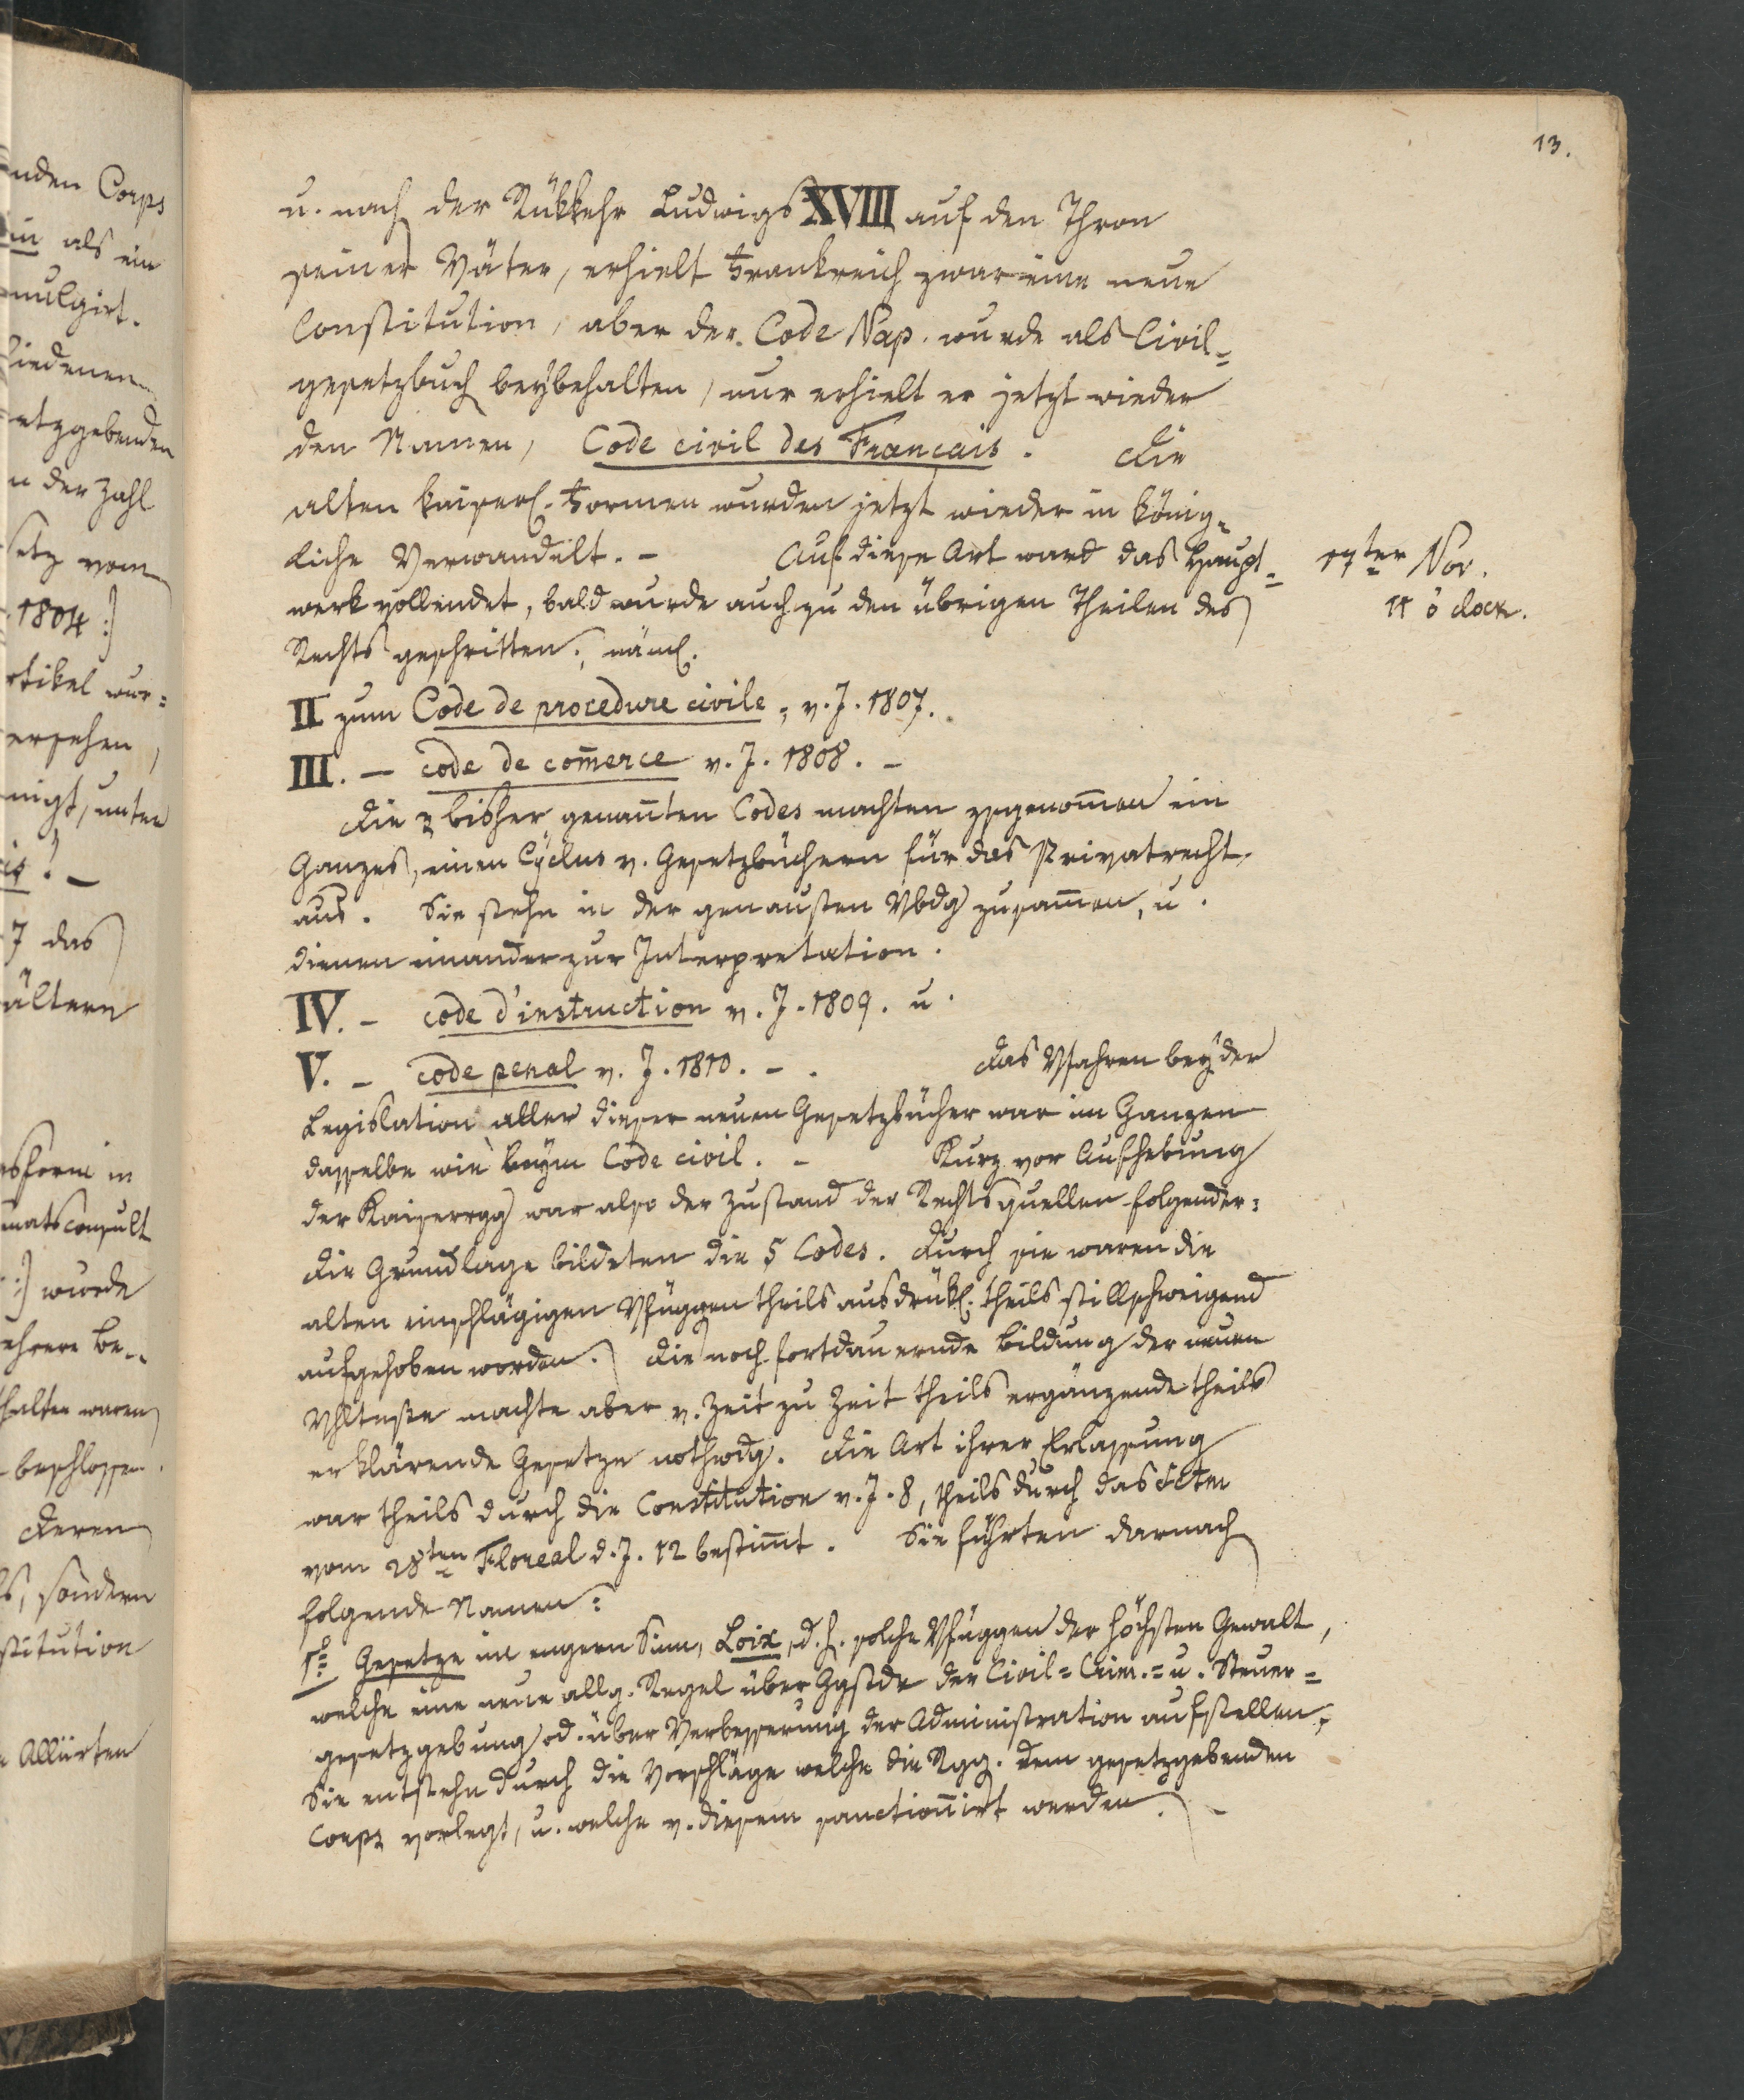 13.
u. nach der Rükkehr Ludwigs XVIII auf den Thron
seiner Väter, erhielt Frankreich zwar eine neue
Constitution, aber der Code Nap. wurde als Civil=
gesetzbuch beybehalten, nur erhielt er jetzt wieder
den Namen, Code civil des Francais. Die
alten kaiserl. Formen wurden jetzt wieder in könig=
liche Verwandelt. – Auf diese Art ward das Haupt=
17ter Nov.
11 o' clock.
werk vollendet, bald wurde auch zu den übrigen Theilen des
Rechts geschritten; näml.
II zum Code de procedure civile, v. J. 1807.
III. – code de com̄erce v. J. 1808. –
Die 3 bisher genan̄ten Codes machten zsgenom̄en ein
Ganzes, einen Cyclus v. Gesetzbüchern für das Privatrecht
aus. Sie stehn in der genausten Vbdg zusam̄en, u.
dienen einander zur Interpretation.
IV. – code d'instruction v. J. 1809. u.
V. – code penal v. J. 1810. – . Das Vfahren bey der
Legislation aller dieser neuen Gesetzbücher war im Ganzen
dasselbe wie beym Code civil. – Kurz vor Aufhebung
der Kaiserrgg war also der Zustand der Rechtsquellen folgender:
Die Grundlage bildeten die 5 Codes. Durch sie waren die
alten einschlägigen Vfüggen theils ausdrükl. theils stillschweigend
aufgehoben worden. Die noch fortdauernde Bildung der neuen
Vhltnße machte aber v. Zeit zu Zeit theils ergänzende theils
erklärende Gesetze nothwdg. Die Art ihrer Erlassung
war theils durch die Constitution v. J. 8, theils durch das SCtm
vom 28ten Floreal d. J. 12 bestim̄t. Sie führten darnach
folgende Namen:
1.) Gesetze im engern Sinn, Loix, d. h. solche Vfüggen der höchsten Gewalt,
welche eine neue allg. Regel über Ggstde der Civil= Crim.= u. Steuer=
gesetzgebung od. über Verbesserung der Administration aufstellen;
Sie entstehn durch die Vorschläge welche die Rgg. dem gesetzgebenden
Corps vorlegt, u. welche v. diesem sanction̄irt werden. –
nden Corps
in als ein
mulgirt.
iedenen
etzgebenden
n der Zahl
setz vom
1804 :)
rtikel wur=
ersehen,
nigt, unter
is! –
J das
ältern
sform in
natsconsult
:) wurde
ehrere Be=
halten waren
beschlossen.
Deren
s, sondern
stitution
Alliirten